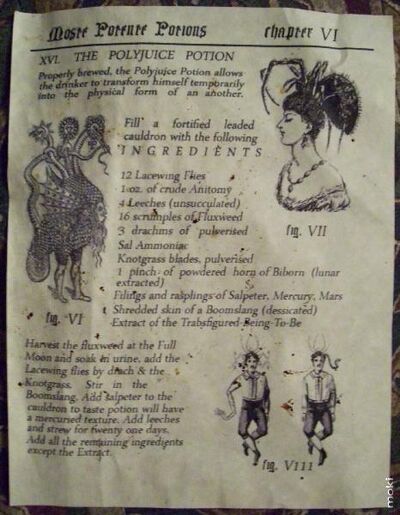 Moste Potente Potions chapter VI
XVI. THE POLYJUICE POTION
Properly brewed, the Polyjuice Potion allows
the drinker to transform himself temporarily
into the physical form of an another.
Fill a fortified leaded
cauldron with the following
INGREDIENTS
12 Lacewing Flies
1 oz. of crude Anitomy
4 Leeches (unsucculated)
16 scrumples of Fluxweed
3 drachms of pulverised
Sal Ammoniac
Knotgrass blades, pulverised
1 pinch of powdered horn of Biborn (lunar
extracted)
Filings and rasplings of Salpeter, Mercury, Mars
Shredded skin of a Boomslang (dessicated)
Extract of the Trabsfigured Being To Be
fig. VII
fig. VI
Harvest the fluxweed at the Full
Moon and soak in urine, add the
Lacewing flies by drach & the
Knotgrass. Stir in the
Boomslang. Add salpeter to the
cauldron to taste potion will have
a mercurised texture. Add leeches
and strew for twenty one days.
Add all the remaining ingredients
except the Extract.
fig. VIII
moki